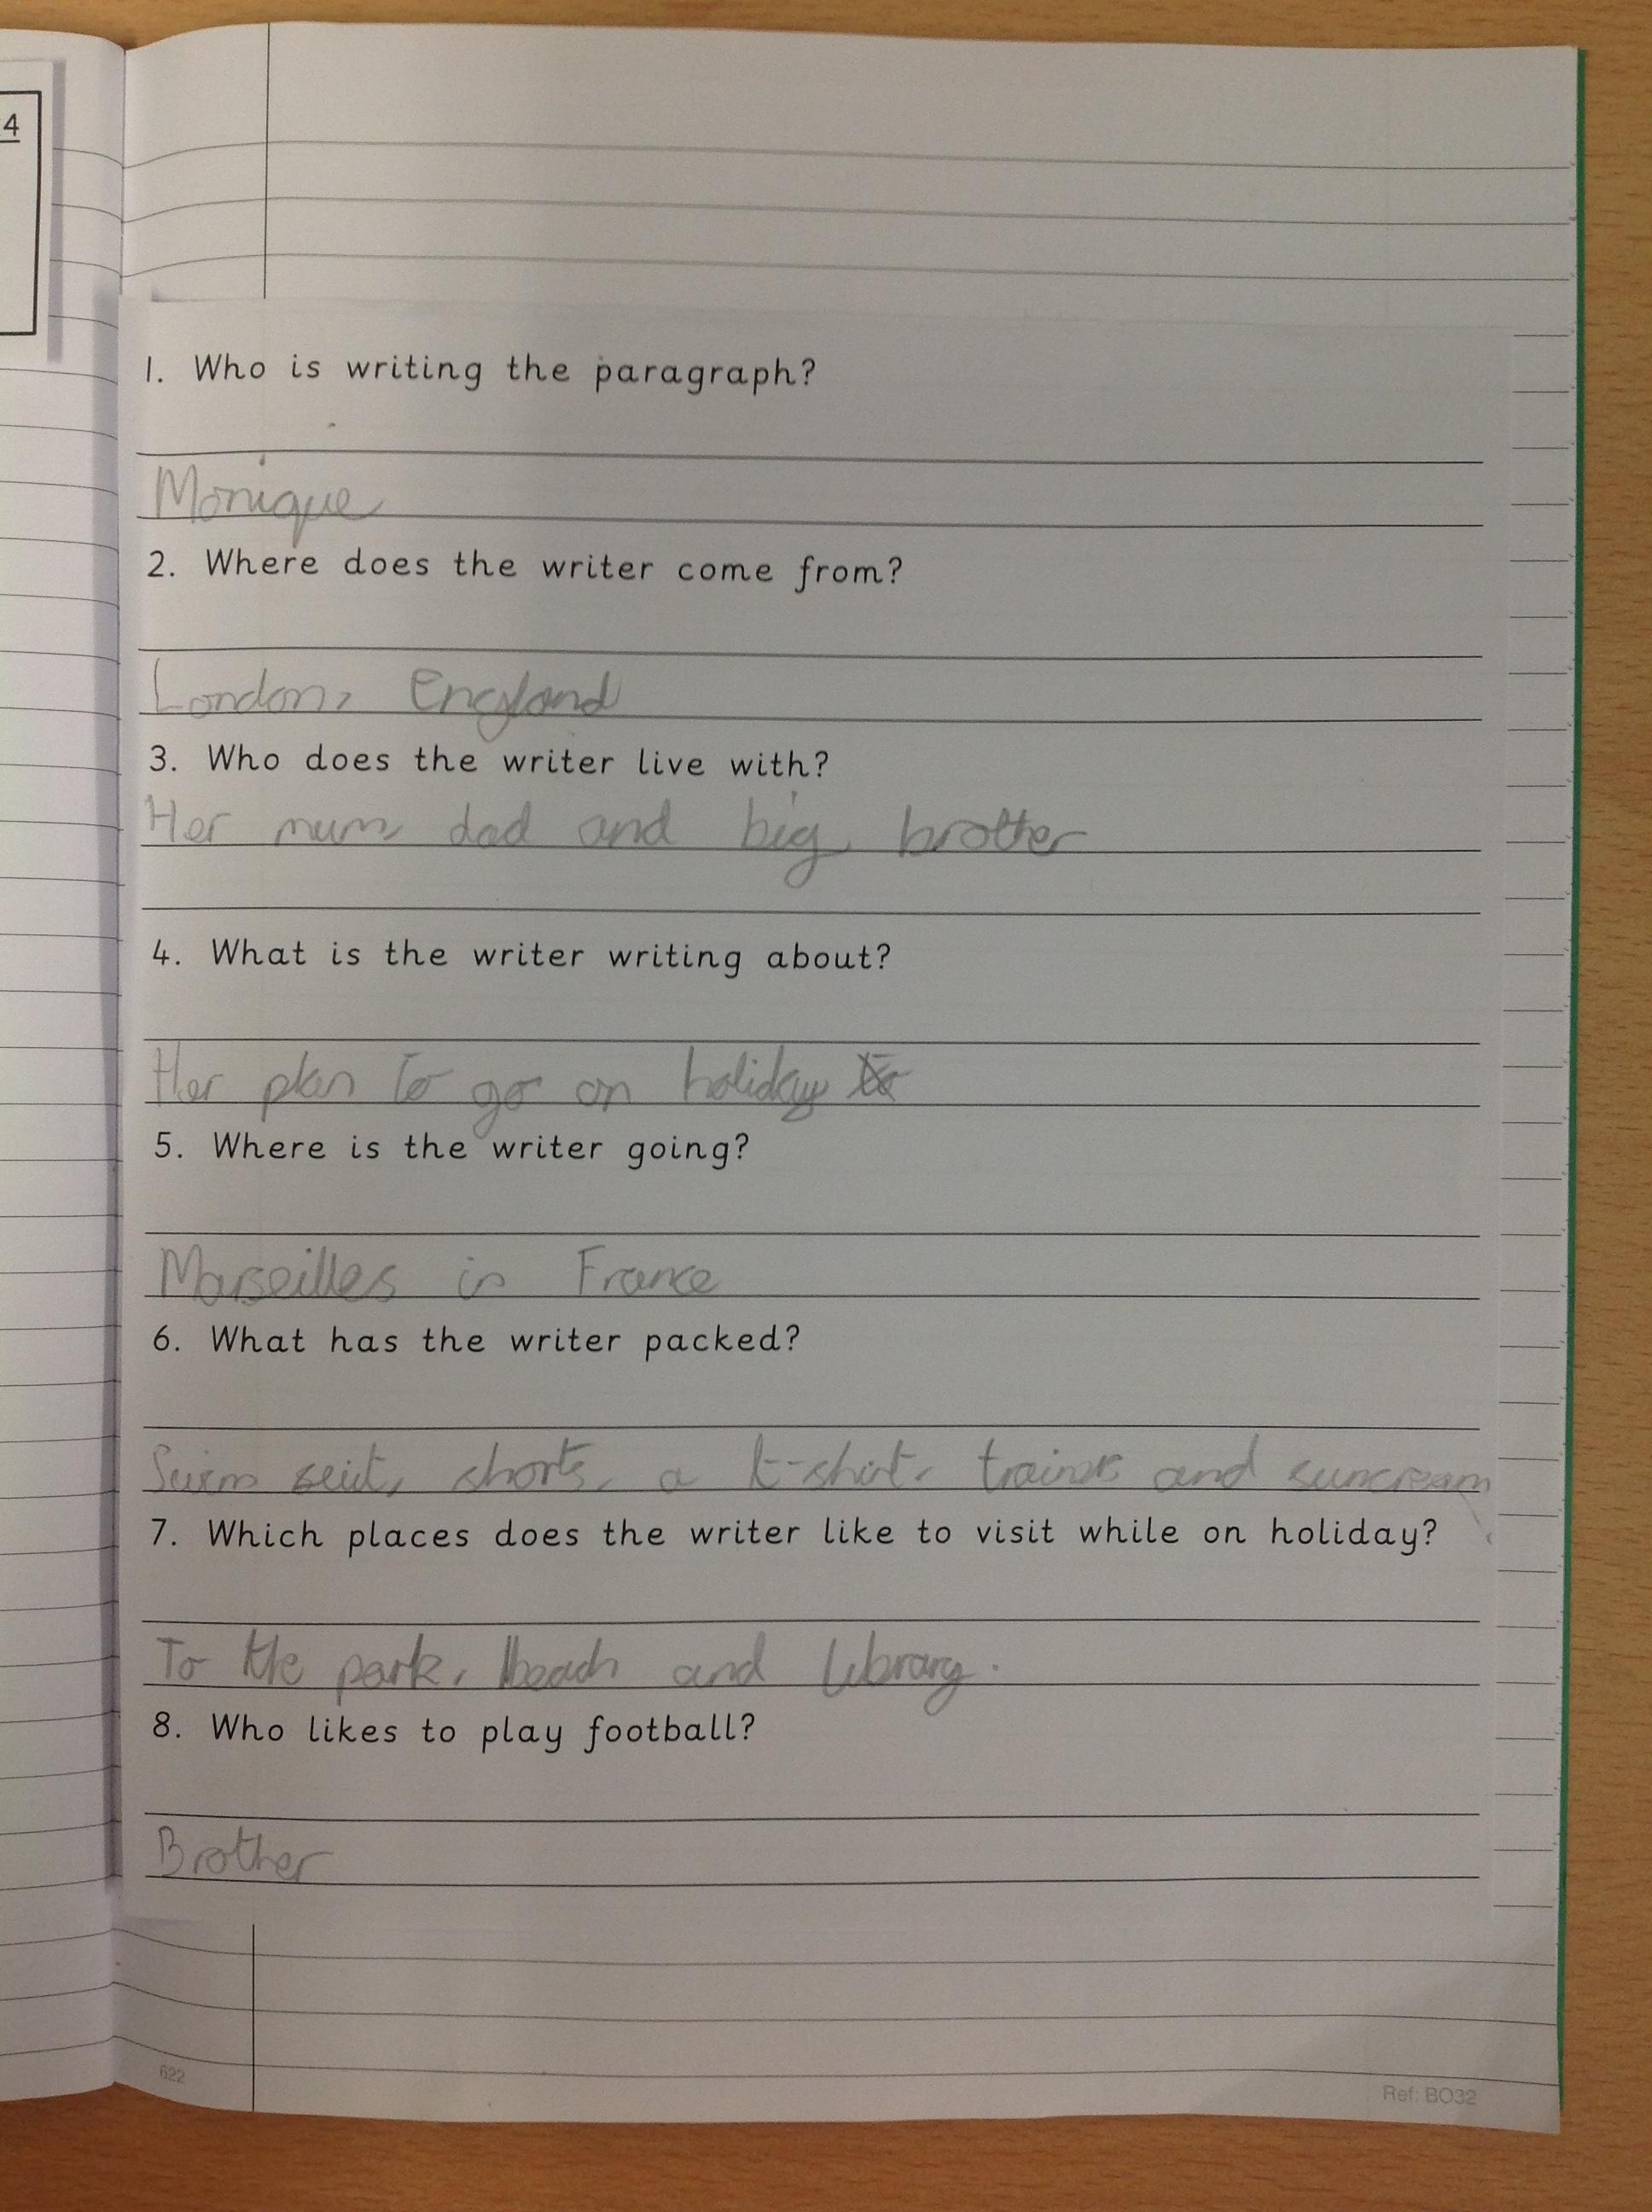 4
1. Who is writing the paragraph?
Monique
2. Where does the writer come from?
London, England
3. Who does the writer live with?
Her mum dad and big brother
4. What is the writer writing about?
Her plan to go on holiday
5. Where is the writer going?
Marseilles in France
6. What has the writer packed?
Swim suit, shorts, a t-shirt, trainers and suncream
7. Which places does the writer like to visit while on holiday?
To the park, beach and library.
8. Who likes to play football?
Brother
622
Ref: BO32